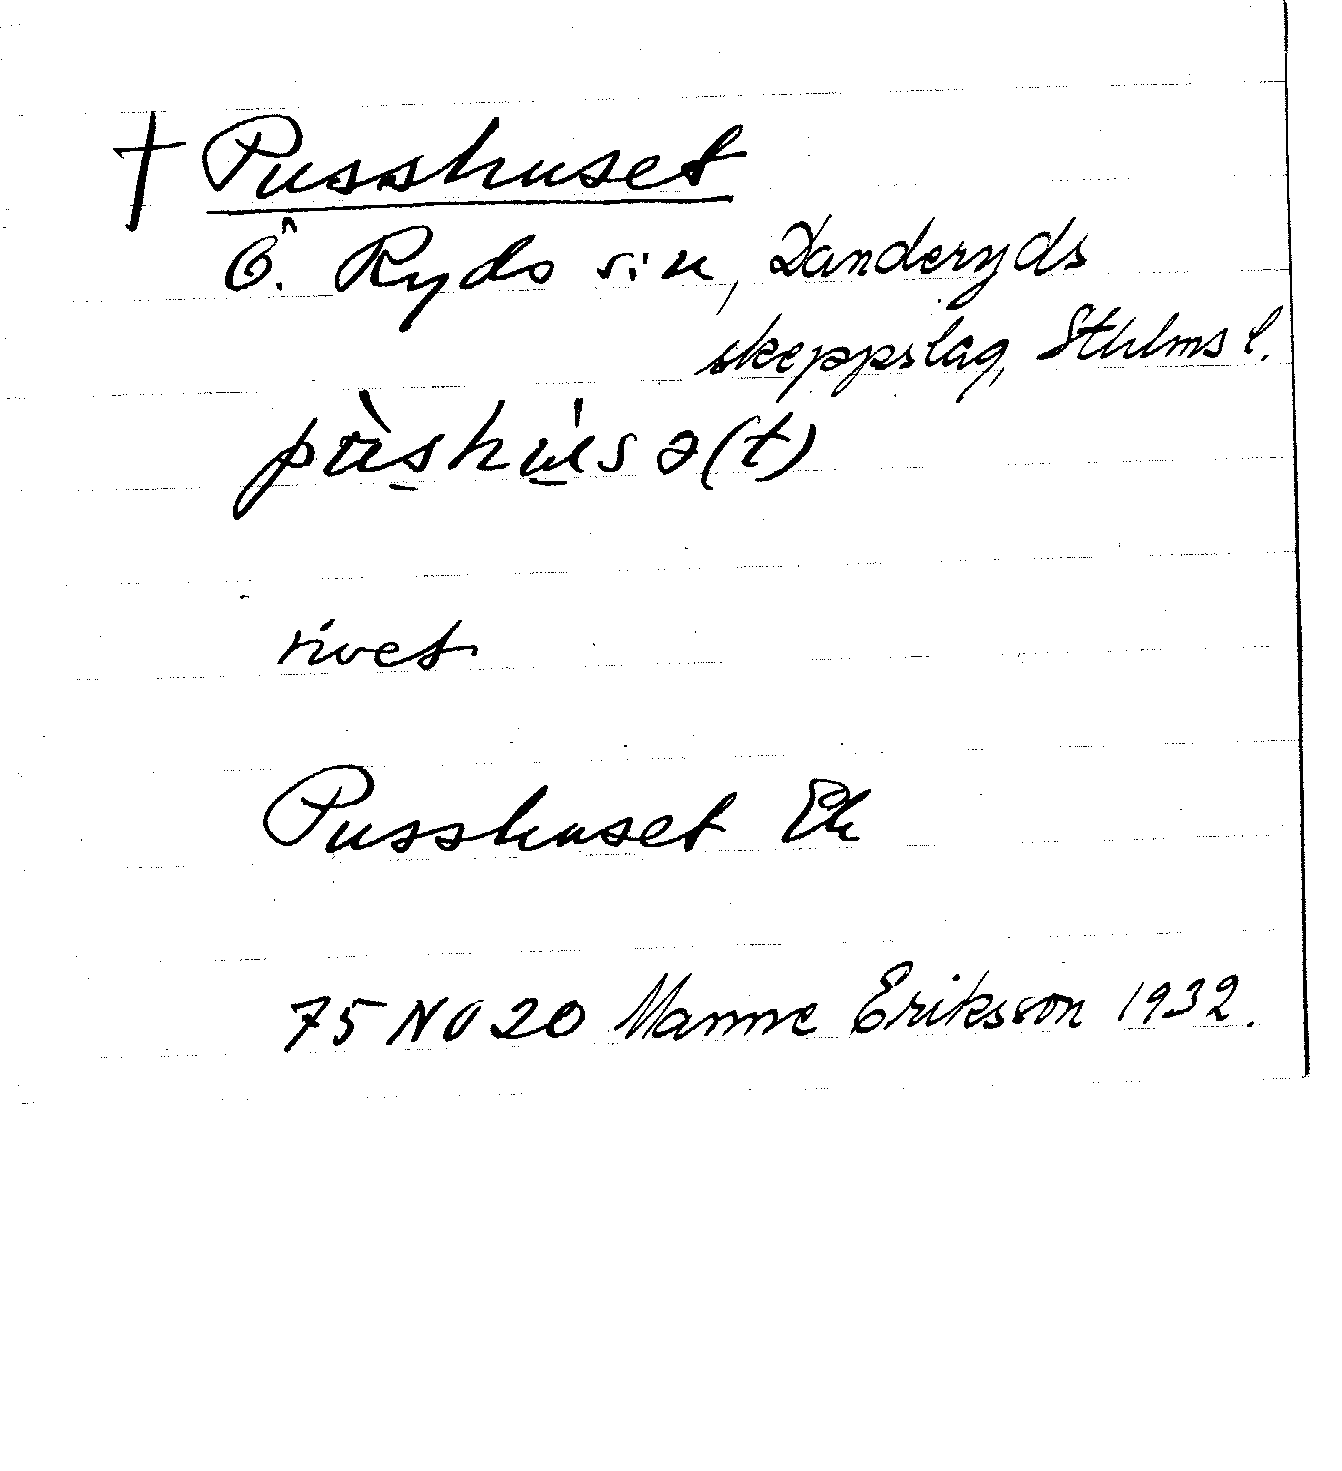 † Pusshuset
Ö. Ryds sn, Danderyds
skeppslag, Sthlms l.
pùshúsə(t)
rivet
Pusshuset Ek
75 NO 20 Manne Eriksson 1932.